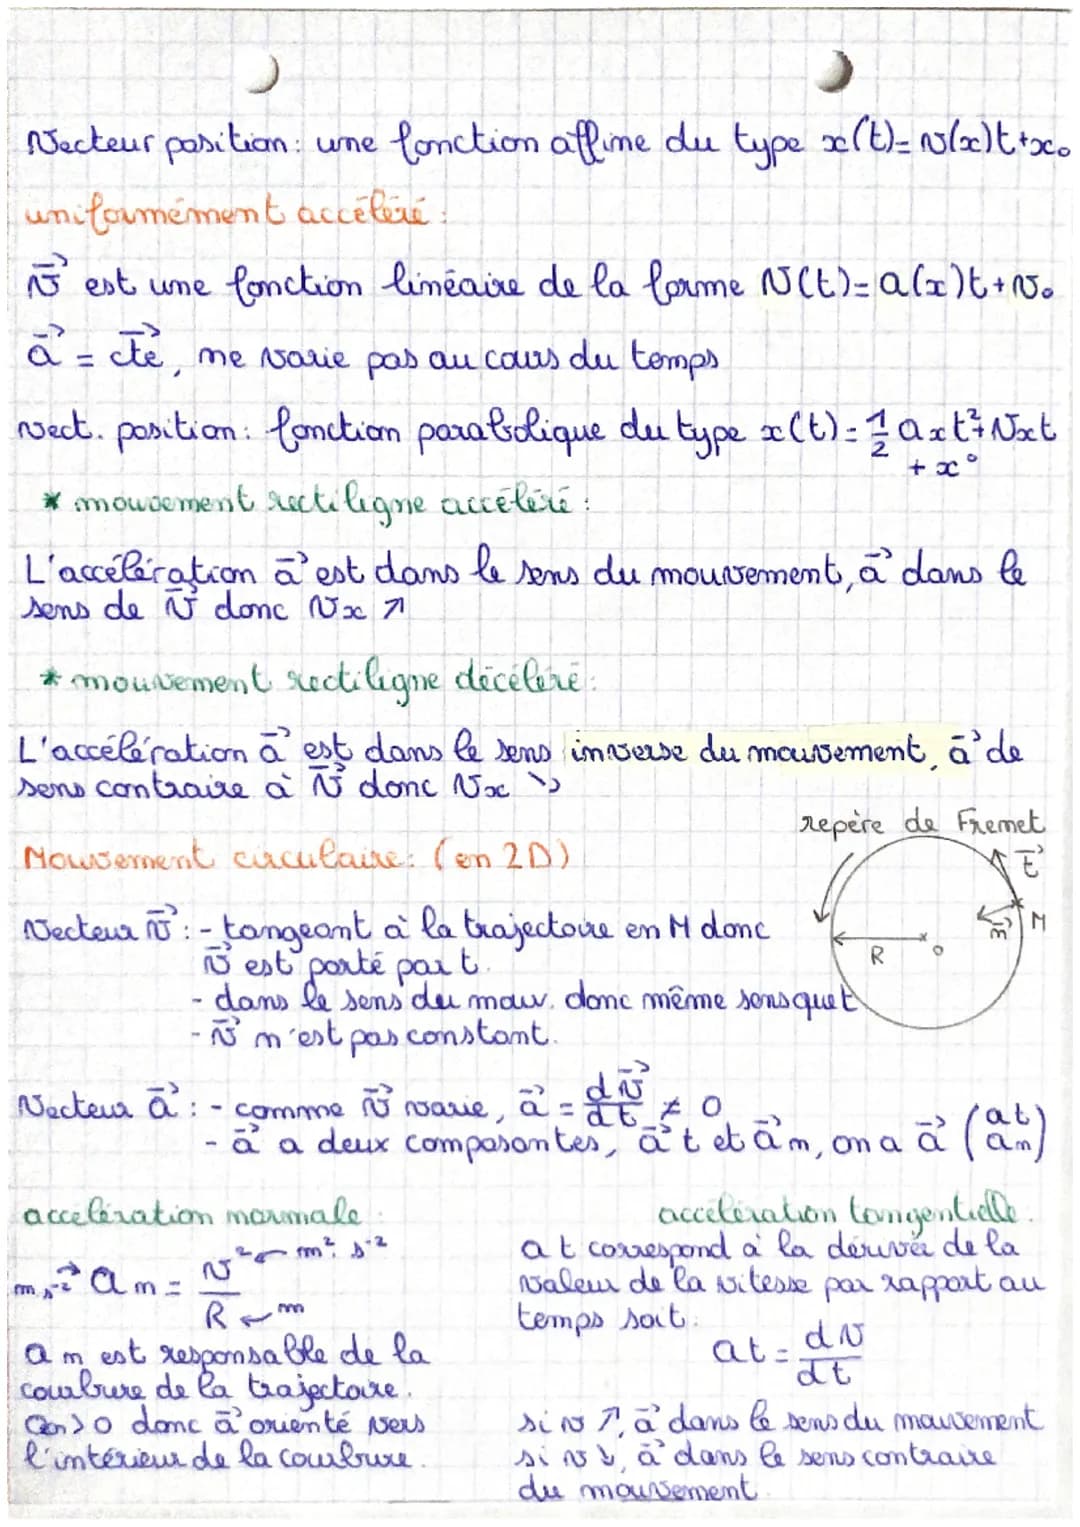 Vecteur position : une fonction affine du type x(t) = v(x)t+x₀
uniformément accéléré :
v⃗ est une fonction linéaire de la forme V(t) = a(x)t + v₀
a⃗ = cte⃗, ne varie pas au cours du temps
vect. position : fonction parabolique du type x(t) = 1/2 axt² + Vxt
+ x°
* mouvement rectiligne accéléré :
L'accélération a⃗ est dans le sens du mouvement, a⃗ dans le
sens de v⃗ donc Vx ↗
* mouvement rectiligne décéléré :
L'accélération a⃗ est dans le sens inverse du mouvement, a⃗ de
sens contraire à v⃗ donc Vx ↘
repère de Frenet
Mouvement circulaire : (en 2D)
t⃗
n⃗
M
R
o
Vecteur v⃗ : - tangeant à la trajectoire en M donc
v⃗ est porté par t.
- dans le sens du mouv. donc même sens que t
- v⃗ n'est pas constant.
Vecteur a⃗ : - comme v⃗ varie, a⃗ = dv⃗/dt ≠ 0
- a⃗ a deux composantes, a⃗t et a⃗n, on a a⃗ (at an)
accélération normale :
m.s⁻² → an = v² ← m².s⁻² / R ← m
an est responsable de la
courbure de la trajectoire.
an>0 donc a⃗ orienté vers
l'intérieur de la courbure.
accélération tangentielle :
at correspond à la dérivée de la
valeur de la vitesse par rapport au
temps soit :
at = dv/dt
si v ↗, a⃗ dans le sens du mouvement
si v ↘, a⃗ dans le sens contraire
du mouvement